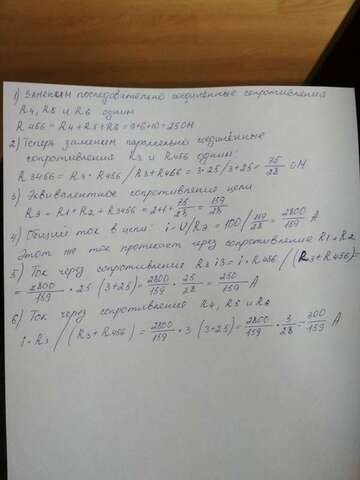 1) Заменим последовательно соединённые сопротивления
R4, R5 и R6 одним
R456 = R4 + R5 + R6 = 9+6+10 = 25 ОМ
2) Теперь заменим параллельно соединённые
сопротивления R3 и R456 одним:
R3456 = R3 · R456 / R3 + R456 = 3·25/3+25 = 75/28 ОМ
3) Эквивалентное сопротивление цепи
RЭ = R1 + R2 + R3456 = 2+1+ 75/28 = 159/28
4) Общий ток в цепи: i = U/RЭ = 100/ 159/28 = 2800/159 А
Этот же ток протекает через сопротивление R1 и R2
5) Ток через сопротивление R3 i3 = i · R456 / (R3 + R456) =
= 2800/159 · 25 (3+25) = 2800/159 · 25/28 = 250/159 А
6) Ток через сопротивления R4, R5 и R6
i · R3 / (R3 + R456) = 2800/159 · 3 (3+25) = 2800/159 · 3/28 = 300/159 А